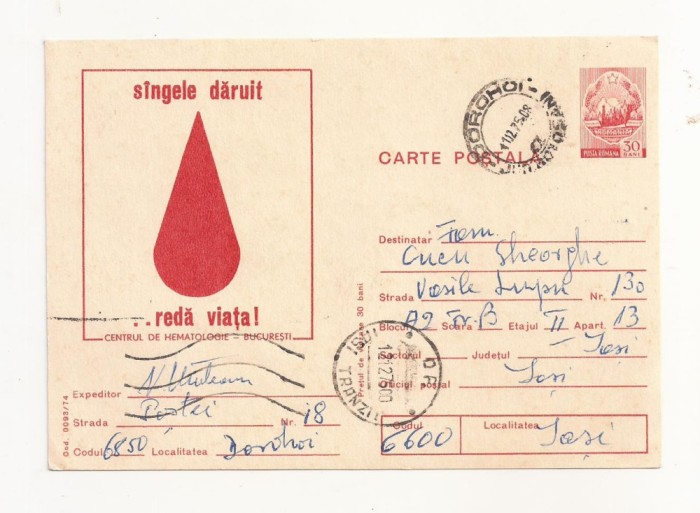 sîngele dăruit
..redă viața!
CENTRUL DE HEMATOLOGIE = BUCUREȘTI
DOROHOI
CARTE POSTALĂ
POSTA ROMANA 30 BANI
Destinatar Fam.
Cucu Gheorghe
Strada Vasile Lupu Nr. 130
Blocul A2 Scara Tr. B Etajul II Apart. 13
Sectorul Județul Iași
Oficiul poștal Iași
Codul 6600 Localitatea Iași
Prețul de vînzare 30 bani
IAȘI TRANZIT
Expeditor
Strada Poștei Nr. 18
Codul 6850 Localitatea Dorohoi
Cod. 0093/74